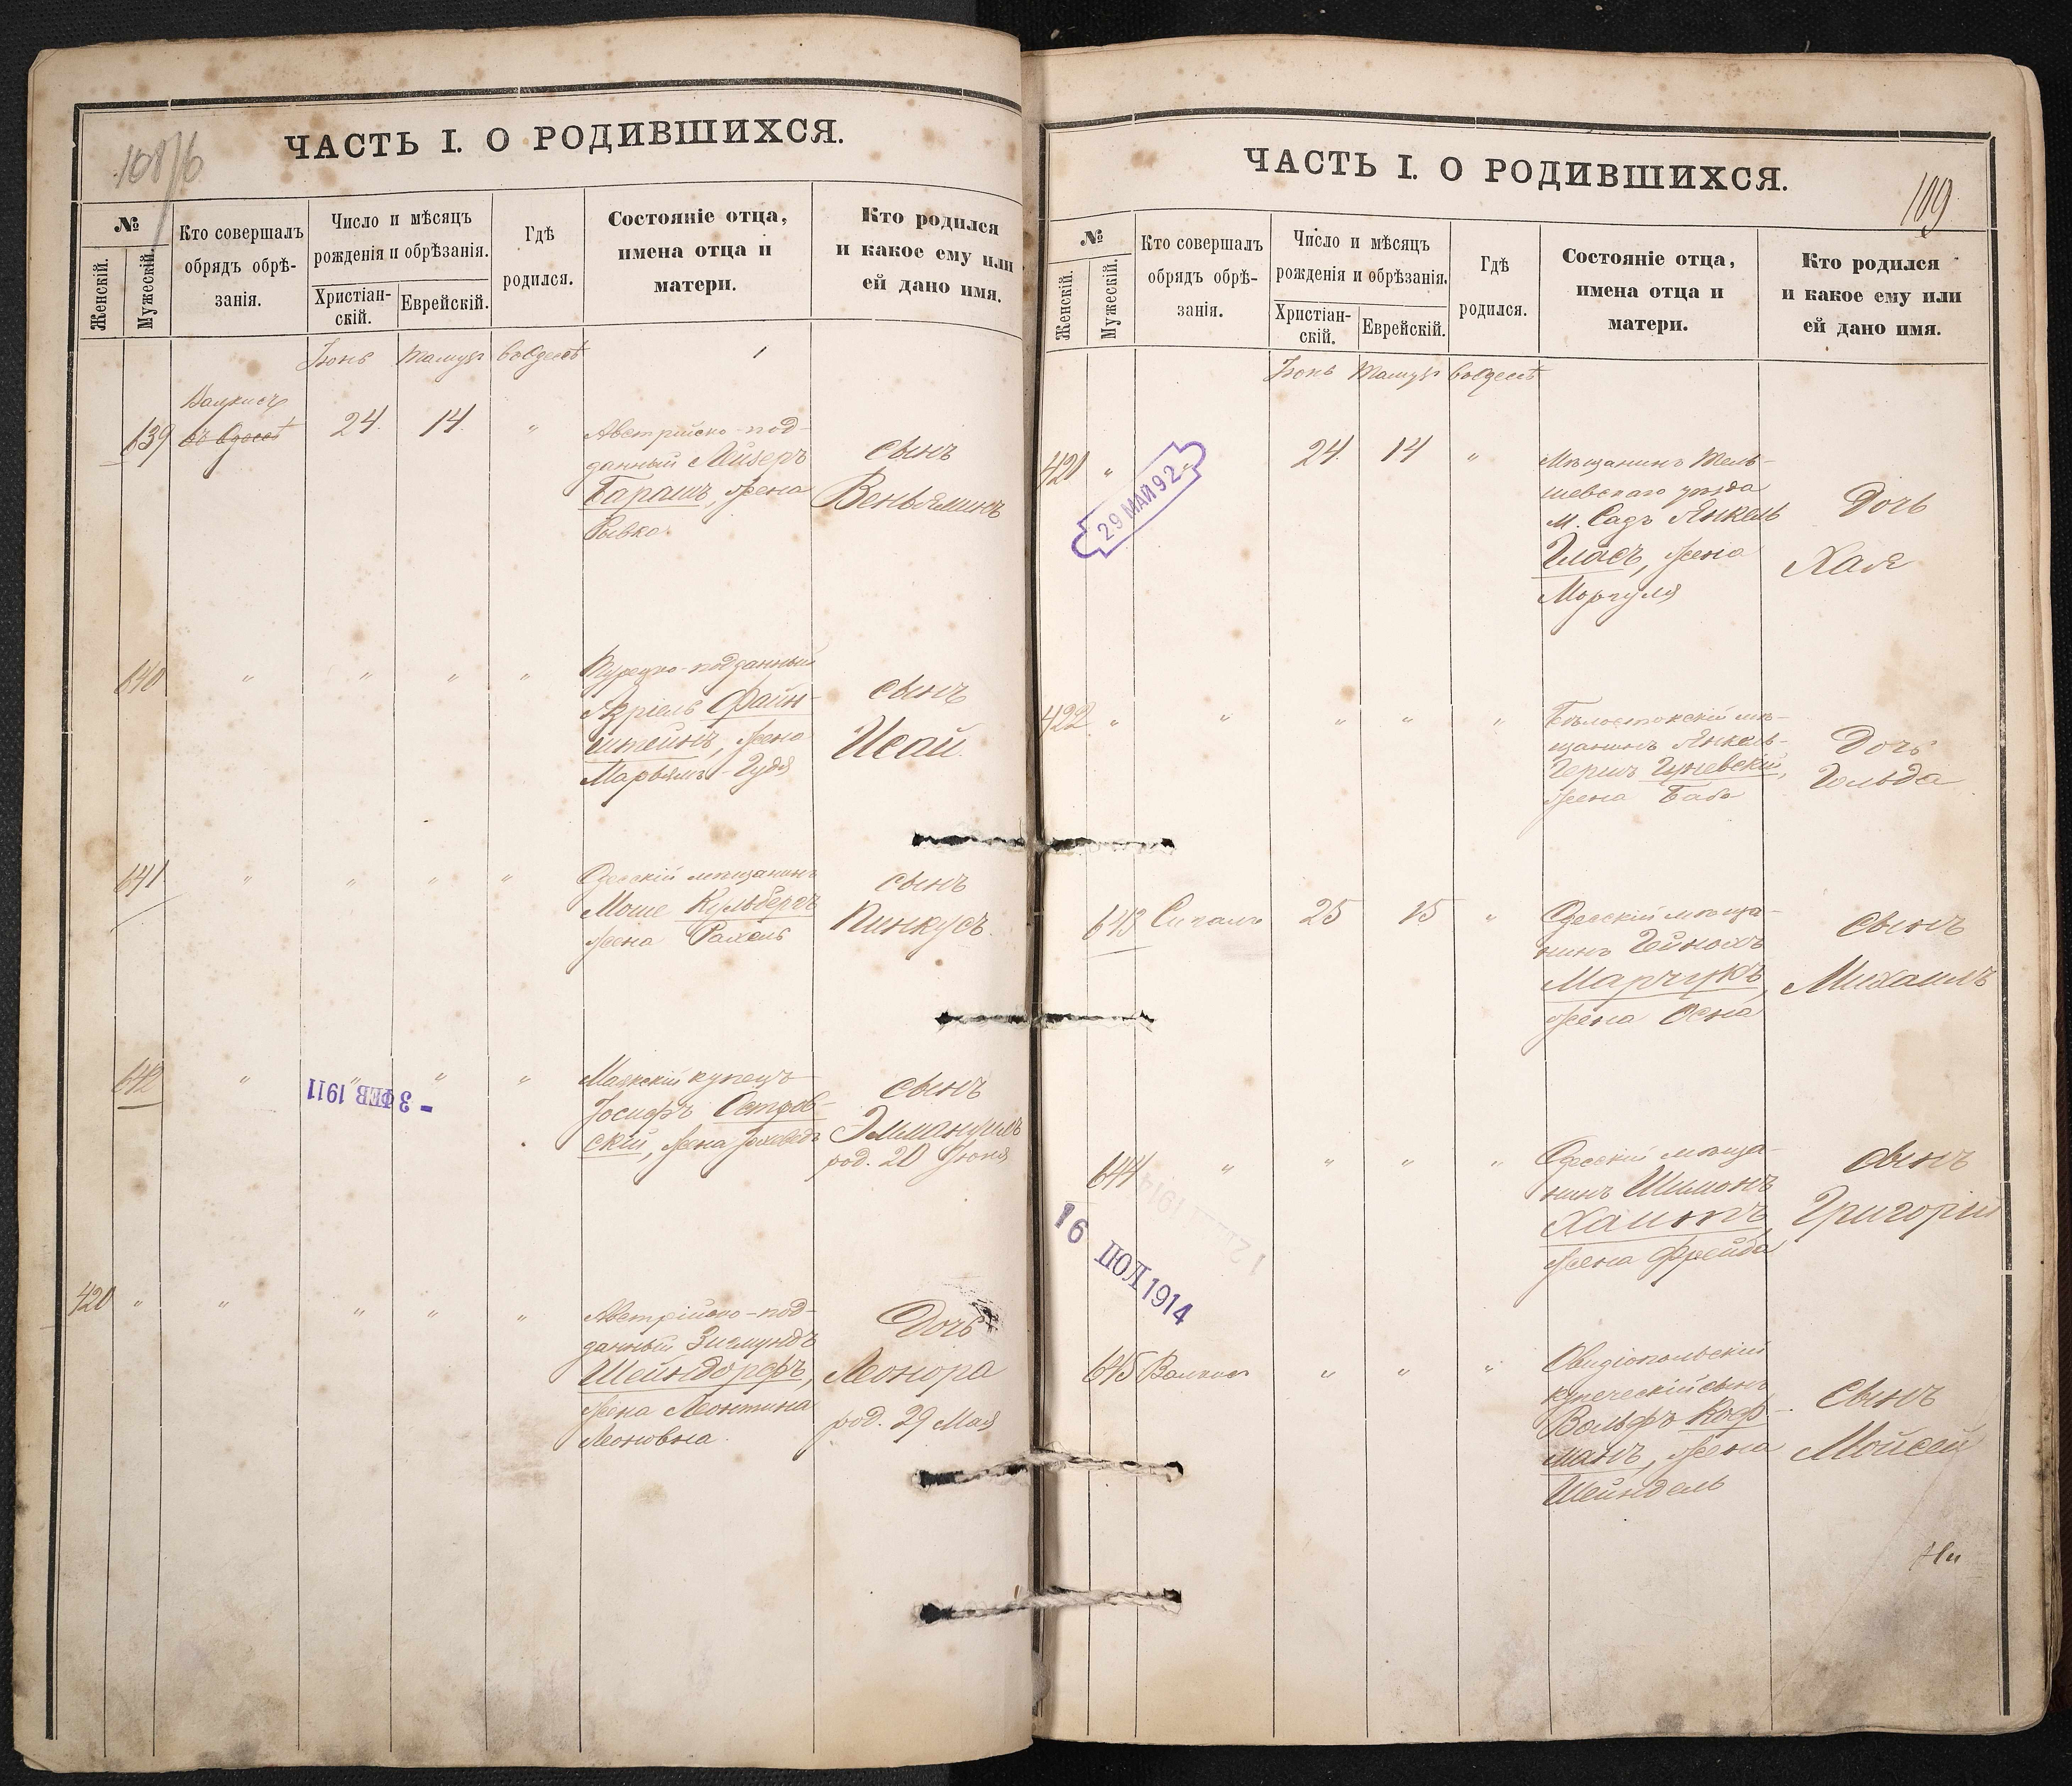 108/6
ЧАСТЬ I. О РОДИВШИХСЯ.
№
Женскій.
Мужескій.
Кто совершалъ
обрядъ обрѣ-
занія.
Число и мѣсяцъ
рожденія и обрѣзанія.
Христіан-
скій.
Еврейскій.
Гдѣ
родился.
Состояніе отца,
имена отца и
матери.
Кто родился
и какое ему или
ей дано имя.
Іюнь Тамузъ въ Одессѣ
639
въ Одессѣ
24. 14. "
Австрійско-под-
данный Лейзеръ
Барашъ, жена
Рывка.
сынъ
Веньяминъ
640 " " " "
Турецко-подданный
Азріель Файн-
штейнъ, жена
Марьямъ-Гудя
сынъ
Исай.
641 " " " "
Одесскій мѣщанинъ
Моше Кульбергъ
жена Рахель
сынъ
Пинкусъ.
642 " " " "
- 3 ФЕВ 1911
Маякскій купецъ
Іосифъ Остров-
скій, жена Іохеведъ
сынъ
Эммануилъ
род. 20 Іюня
420 " " " " "
Австрійско-под-
данный Зигмундъ
Шейндорфъ,
жена Леонтина
Леоновна.
Дочь
Леонора
род. 29 Мая
ЧАСТЬ I. О РОДИВШИХСЯ.
109
№
Женскій.
Мужескій.
Кто совершалъ
обрядъ обрѣ-
занія.
Число и мѣсяцъ
рожденія и обрѣзанія.
Христіан-
скій.
Еврейскій.
Гдѣ
родился.
Состояніе отца,
имена отца и
матери.
Кто родился
и какое ему или
ей дано имя.
Іюнь Тамузъ въ Одессѣ
421 " 24 14 "
29 МАЙ 92
Мѣщанинъ Тель-
шевскаго уѣзда
м. Садъ Янкель
Гласъ, жена
Моргуля
Дочь
Хая
422 " " " " "
Бѣлостокскій мѣ-
щанинъ Янкель-
Гершъ Гужевскій,
жена Баба
Дочь
Гольда
643 Сигалъ 25 15 "
Одесскій мѣща-
нинъ Гейнохъ
Марчукъ,
жена Осна
сынъ
Михаилъ
644 " " " "
16 ІЮЛ 1914
Одесскій мѣща-
нинъ Шимонъ
Хаитъ,
жена Фрейда
сынъ
Григорій
645 " " "
Овидіопольскій
купеческій сынъ
Вольфъ Коф-
манъ, жена
Шейндель
сынъ
Мойсей